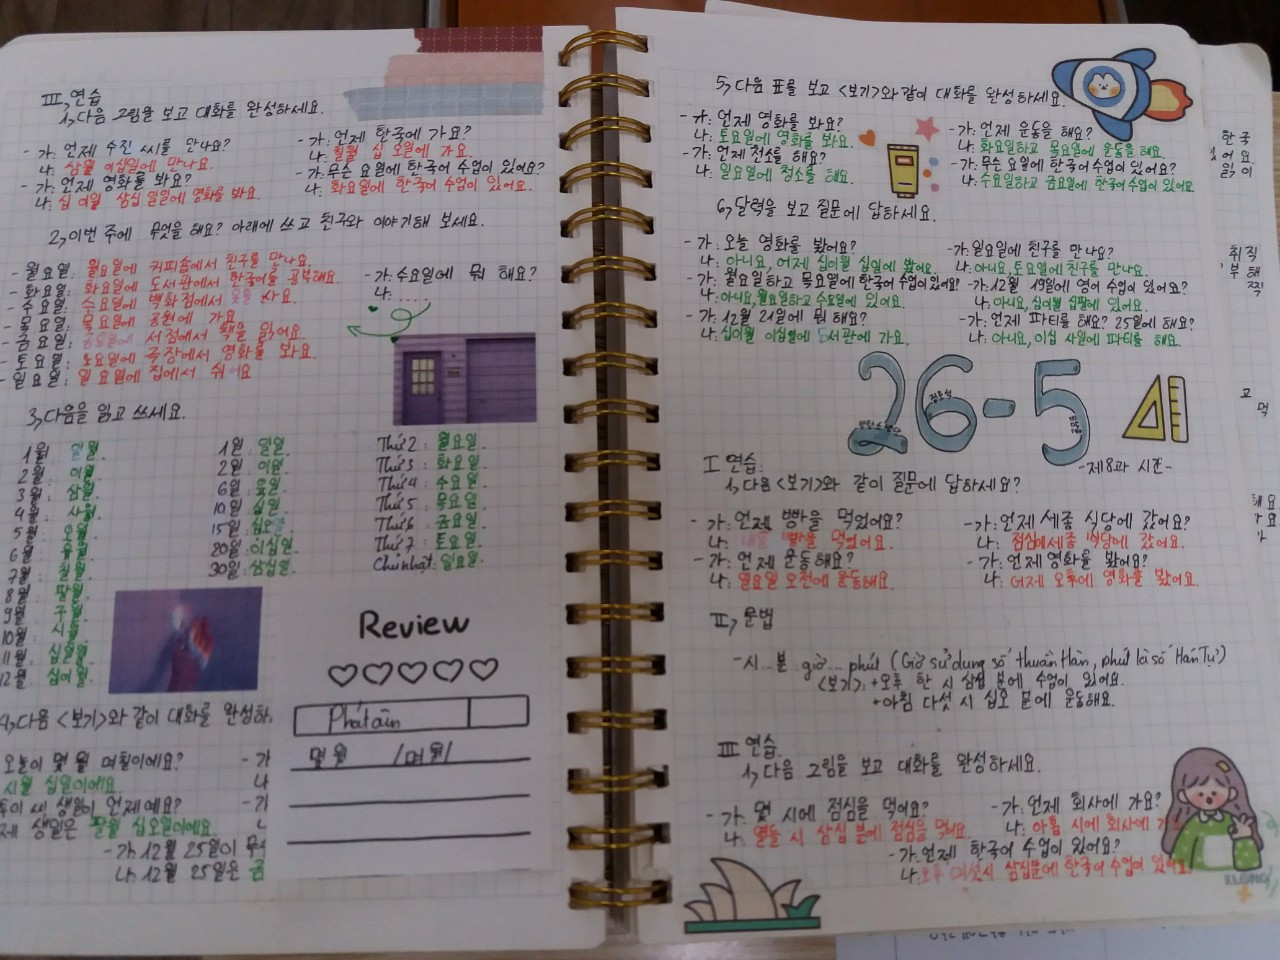 III, 연습
1, 다음 그림을 보고 대화를 완성하세요.
- 가: 언제 수진 씨를 만나요?
나: 삼월 이십일에 만나요.
- 가: 언제 영화를 봐요?
나: 십 이월 삼십 일일에 영화를 봐요.
- 가: 언제 한국에 가요?
나: 칠월 십 오일에 가요
- 가: 무슨 요일에 한국어 수업이 있어요?
나: 화요일에 한국어 수업이 있어요.
2, 이번 주에 무엇을 해요? 아래에 쓰고 친구와 이야기해 보세요.
- 월요일: 월요일에 커피숍에서 친구를 만나요.
- 화요일: 화요일에 도서관에서 한국어를 공부해요
- 수요일: 수요일에 백화점에서 옷을 사요.
- 목요일: 목요일에 공원에 가요
- 금요일: 금요일에 서점에서 책을 읽어요
- 토요일: 토요일에 극장에서 영화를 봐요.
- 일요일: 일요일에 집에서 쉬어요
- 가: 수요일에 뭐 해요?
나: .....
3, 다음을 읽고 쓰세요.
1월 일월.
2월: 이월.
3월: 삼월.
4월: 사월.
5월: 오월.
6월: 유월.
7월: 칠월.
8월: 팔월.
9월: 구월.
10월: 시월.
11월: 십일월.
12월: 십이월.
1월: 일일.
2일: 이일.
6일: 육일.
10일: 십일.
15일: 십오일
20일: 이십일.
30일: 삼십일.
Thứ 2: 월요일.
Thứ 3: 화요일.
Thứ 4: 수요일.
Thứ 5: 목요일.
Thứ 6: 금요일.
Thứ 7: 토요일.
Chủ nhật: 일요일.
Review
Phát âm
몇 월 /며 뭘/
4, 다음 <보기>와 같이 대화를 완성하
오늘이 몇 월 며칠이에요?
시월 십일이에요.
씨 생일이 언제예요?
제 생일은 팔월 십오일이에요.
- 가
나
- 가: 12월 25일이 무슨
나: 12월 25일은 금
5, 다음 표를 보고 <보기>와 같이 대화를 완성하세요.
- 가: 언제 영화를 봐요?
나: 토요일에 영화를 봐요.
- 가: 언제 청소를 해요?
나: 일요일에 청소를 해요.
- 가: 언제 운동을 해요?
나: 화요일하고 목요일에 운동을 해요.
- 가: 무슨 요일에 한국어 수업이 있어요?
나: 수요일하고 금요일에 한국어 수업이 있어요
6, 달력을 보고 질문에 답하세요.
- 가: 오늘 영화를 봤어요?
나: 아니요, 어제 십이월 십일에 봤어요.
- 가: 월요일하고 목요일에 한국어 수업이 있어요?
나: 아니요, 월요일하고 수요일에 있어요.
- 가: 12월 21일에 뭐 해요?
나: 십이월 이십일에 도서관에 가요.
- 가: 일요일에 친구를 만나요?
나: 아니요, 토요일에 친구를 만나요.
- 가: 12월 19일에 영어 수업이 있어요?
나: 아니요, 십이월 십팔에 있어요.
- 가: 언제 파티를 해요? 25일에 해요?
나: 아니요, 이십 사일에 파티를 해요.
26-5
- 제8과 시간 -
I 연습:
1, 다음 <보기>와 같이 질문에 답하세요?
- 가: 언제 빵을 먹었어요?
나: 빵을 먹었어요.
- 가: 언제 운동해요?
나: 일요일 오전에 운동해요.
- 가: 언제 세종 식당에 갔어요?
나: 점심에 세종 식당에 갔어요.
- 가: 언제 영화를 봤어요?
나: 어제 오후에 영화를 봤어요.
II, 문법
- 시... 분: giờ... phút (Giờ sử dụng số thuần Hàn, phút là số Hán Tự)
<보기>: + 오후 한 시 삼십 분에 수업이 있어요.
+ 아침 다섯 시 십오 분에 운동해요.
III 연습.
1, 다음 그림을 보고 대화를 완성하세요.
- 가: 몇 시에 점심을 먹어요?
나: 열둘 시 삼십 분에 점심을 먹어요.
- 가: 언제 회사에 가요?
나: 아홉 시에 회사에 가
- 가: 언제 한국어 수업이 있어요?
나: 오후 여섯시 삼십분에 한국어 수업이 있어요.
KLONG
한국
어요
읽이
취직
부해
고
먹